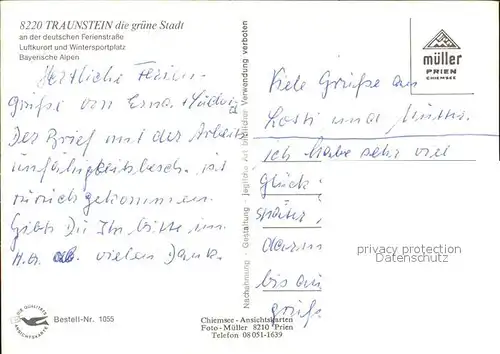 8220 TRAUNSTEIN die grüne Stadt
an der deutschen Ferienstraße
Luftkurort und Wintersportplatz
Bayerische Alpen
Herzliche Ferien-
grüße von Erna
Der Brief mit der Arbeits
unfähigkeitsbesch. ist
zurückgekommen.
Gibst Du Ihn bitte im
H.A. ab. vielen Dank.
DIE QUALITÄTS
ANSICHTSKARTE
Bestell-Nr. 1055
Nachahmung - Gestaltung - Jegliche Art bildlicher Verwendung verboten
Chiemsee-Ansichtskarten
Foto-Müller 8210 Prien
Telefon 08051-1639
müller
PRIEN
CHIEMSEE
Viele Grüße an
und
ich habe sehr viel
Glück
später
darum
bis
grüße
privacy protection
Datenschutz